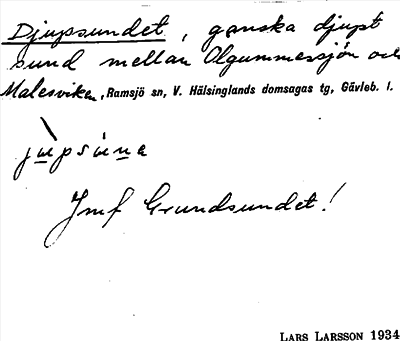 Djupsundet, ganska djupt
sund mellan Olgummessjön och
Malesviken, Ramsjö sn, V. Hälsinglands domsagas tg, Gävleb. l.
jupsúna
Jmf Grundsundet!
LARS LARSSON 1934